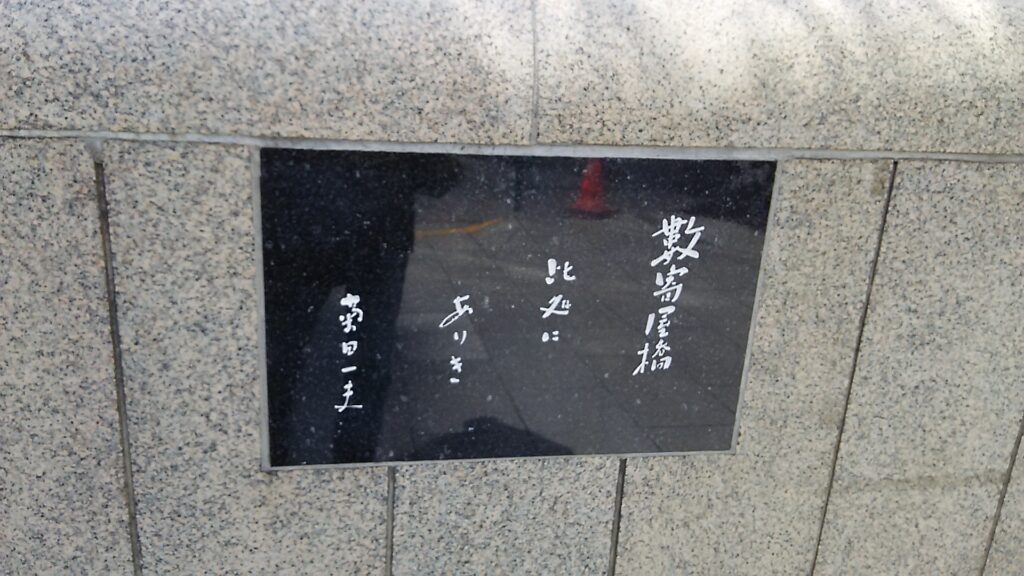 數寄屋橋
此処に
ありき
菊田一夫